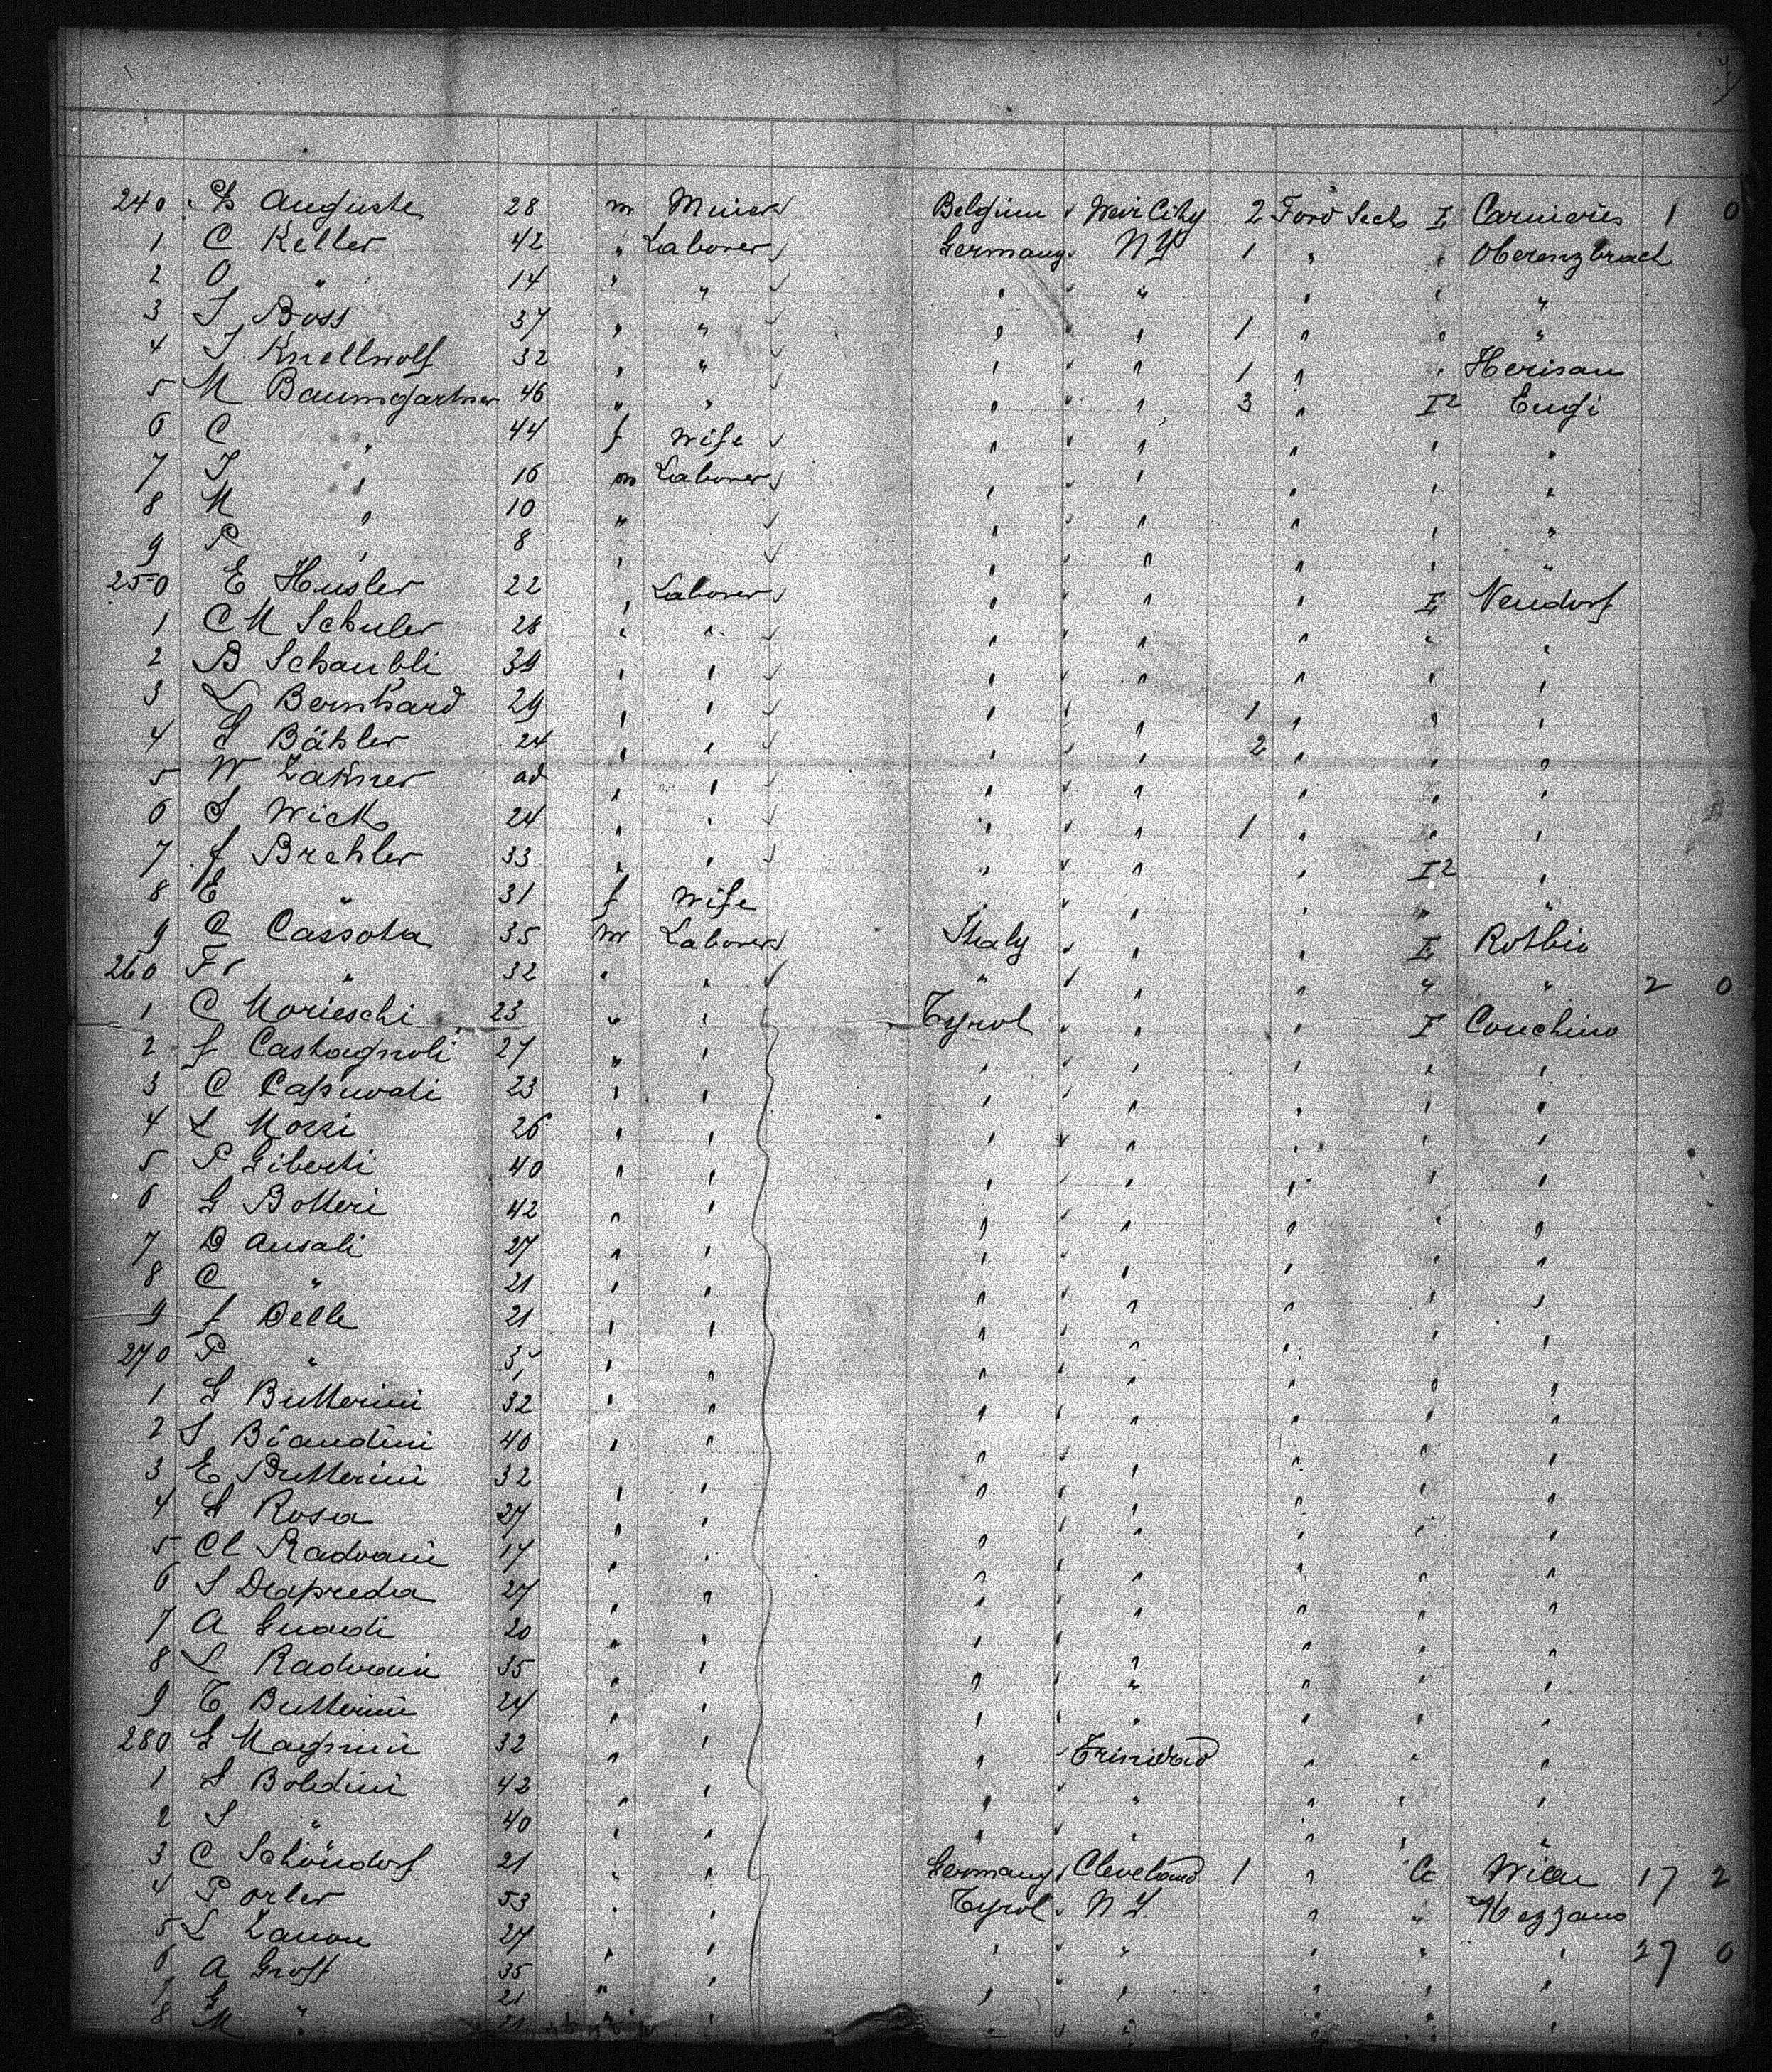 240 Auguste 28 m Miner Belgium Weir City 2 Ford Seck I Carnieries 1 0
1 C Keller 42 " Laborer Germany NY 1 " " Oberenzbrach
2 O " 14 " " " " " " "
3 J Boss 37 " " " " 1 " " "
4 J Knellwolf 32 " " " " 1 " " Herisau
5 M Baumgartner 46 " " " " 3 " I2 Engi
6 C " 44 f Wife " " " " "
7 J " 16 m Laborer " " " " "
8 M " 10 " " " " " "
9 P " 8 " " " " " "
250 E Husler 22 " Laborer " " " I Neudorf
1 C M Schuler 28 " " " " " " "
2 B Schaubli 39 " " " " " " "
3 L Bernhard 29 " " " " 1 " " "
4 S Bähler 24 " " " " 2 " " "
5 W Zakner ad " " " " " " "
6 S Wick 24 " " " " 1 " " "
7 f Brehler 33 " " " " " I2 "
8 E " 31 f Wife " " " " "
9 C Cassota 35 m Laborer Italy " " I Rothio
260 Fr " 32 " " " " " " " 2 0
1 C Morieschi 23 " " Tyrol " " I Conchino
2 f Castagnoli 27 " " " " " " "
3 C 23 " " " " " " "
4 L Mozzi 26 " " " " " " "
5 P Giberti 40 " " " " " " "
6 G Botteri 42 " " " " " " "
7 D Ansali 27 " " " " " " "
8 C " 21 " " " " " " "
9 f Delle 21 " " " " " " "
270 P " " " " " " " "
1 G Butterini 32 " " " " " " "
2 S Biandini 40 " " " " " " "
3 E Butterini 32 " " " " " " "
4 S Rosa 27 " " " " " " "
5 Cl Radoani 17 " " " " " " "
6 S Diapreda 27 " " " " " " "
7 A Guadi 20 " " " " " " "
8 L Radoani 35 " " " " " " "
9 T Butterini 24 " " " " " " "
280 G Magnini 32 " " " Trinidad " " "
1 S Boldini 42 " " " " " " "
2 S " 40 " " " " " " "
3 C Schöndorf 21 " " Germany Cleveland 1 " Cc Wien 17 2
4 P Orler 53 " " Tyrol N Y " " Mezzano
5 L Zanon 27 " " " " " " " 27 0
6 A Groff 35 " " " " " " "
7 G 21 " " " " " " "
8 M " 21 " " " " " " "